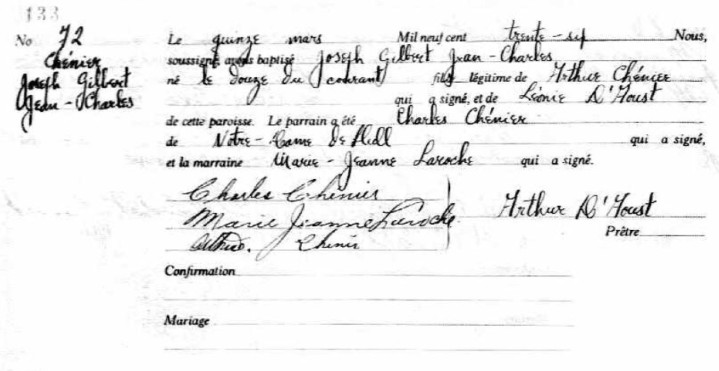 133
No 72 Le quinze mars Mil neuf cent trente-sept Nous,
Chénier soussigné avons baptisé Joseph Gilbert Jean-Charles
Joseph Gilbert né le douze du courant fils légitime de Arthur Chénier
Jean-Charles qui a signé, et de Léonie D'Aoust
de cette paroisse. Le parrain a été Charles Chénier
de Notre-Dame de Hull qui a signé,
et la marraine Marie-Jeanne Laroche qui a signé.
Charles Chénier
Marie Jeanne Laroche Arthur D'Aoust
Chenier Prêtre
Confirmation
Mariage